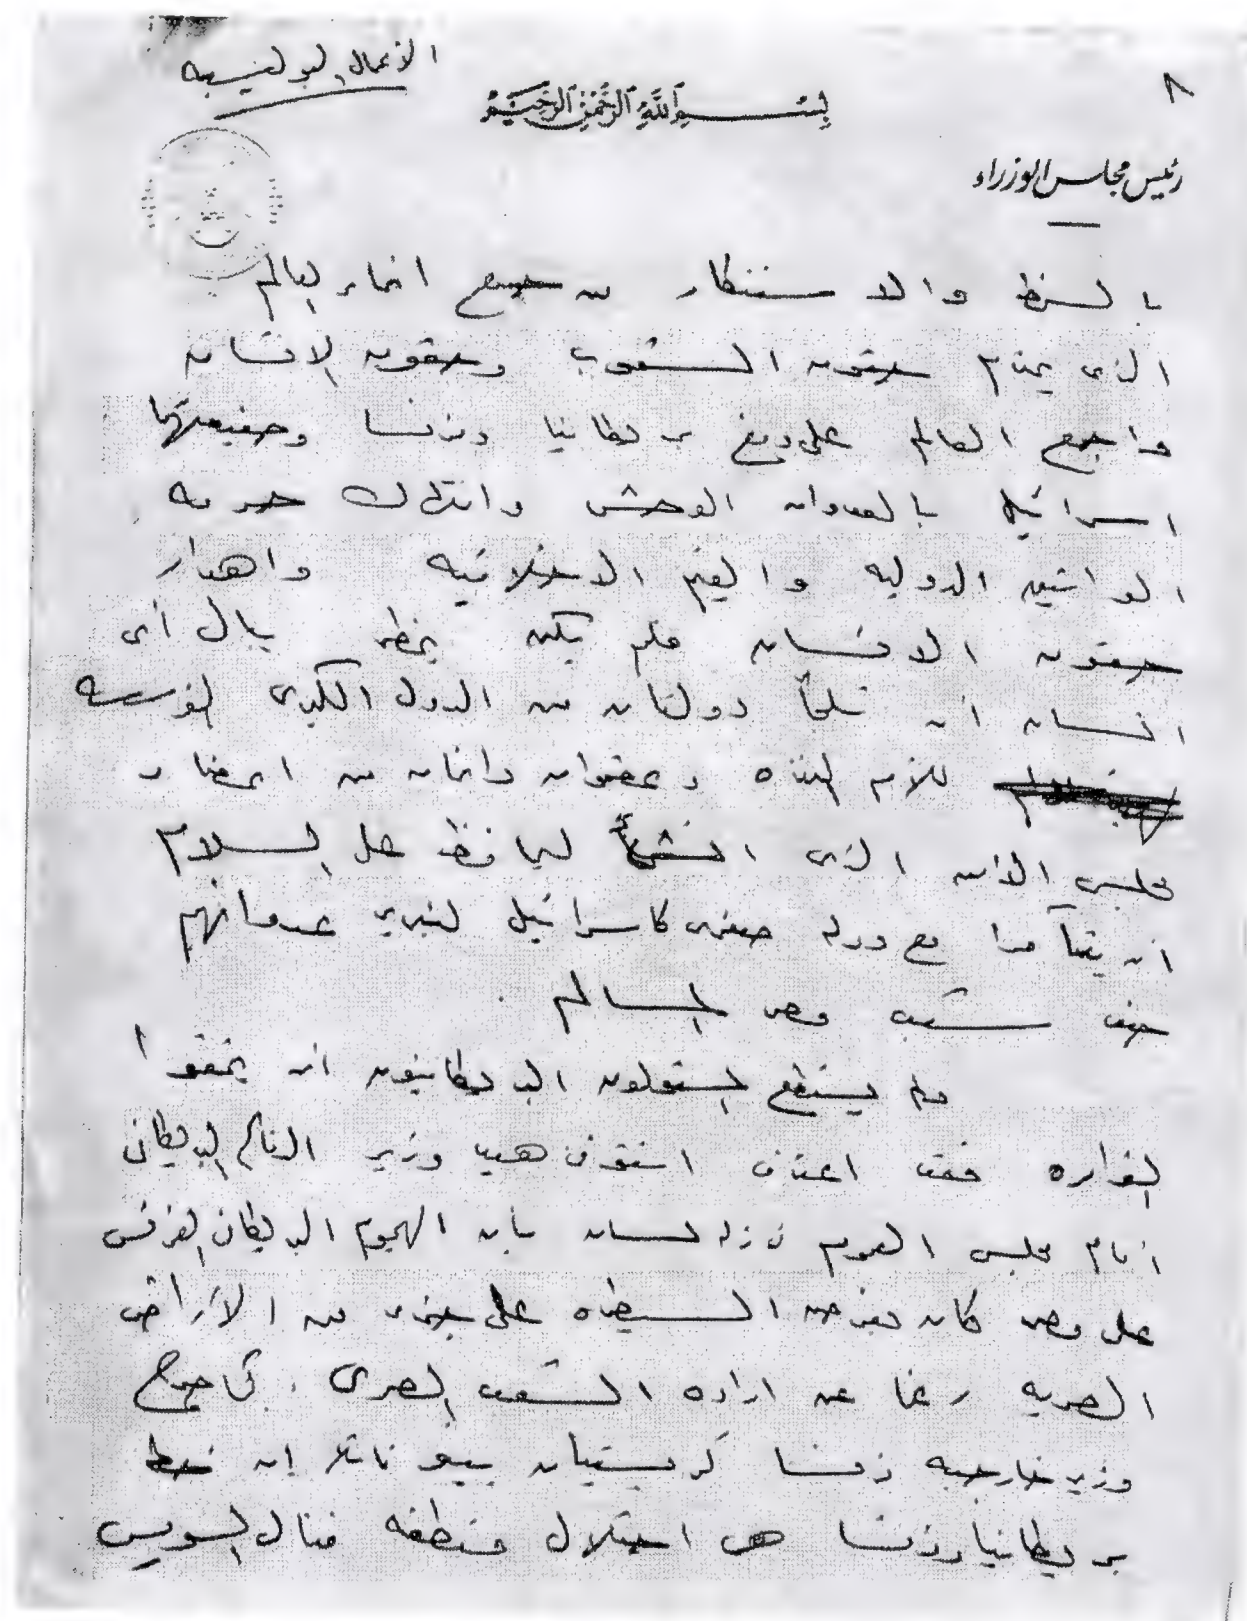 الأعمال البوليسية
٨
بسم الله الرحمن الرحيم
رئيس مجلس الوزراء
بالسخط والاستنكار من جميع انحاء العالم
الذى يحترم حقوق الشعوب وحقوق الانسان
واجمع العالم على دمغ بريطانيا وفرنسا وصنيعتهما
اسرائيل بالعدوان الوحشى وانتهاك حرمه
المواثيق الدوليه والقيم الاخلاقيه واهدار
حقوق الانسان فلم يكن يخطر ببال أى
انسان ان تلجأ دولتان من الدول الكبرى المؤسسه
للأمم المتحده وعضوان دائمان من اعضاء
مجلس الأمن الذى انشئ ليحافظ على السلام
ان يتآمرا مع دوله صغرى كاسرائيل لتبرير عدوانهم
ضد شعب مصر المسالم .
ولم يستطع المسئولون البريطانيون ان يخفوا
المؤامره فقد اعترف انتونى هيد وزير الدفاع البريطانى
أمام مجلس العموم فى زلة لسان بأن الهجوم البريطانى الفرنسى
على مصر كان بغرض السيطره على جزء من الأراضى
المصريه رغما عن اراده الشعب المصرى . كما صرح
وزير خارجيه فرنسا كريستيان بينو قائلا ان خطة
بريطانيا وفرنسا هى احتلال منطقه قنال السويس